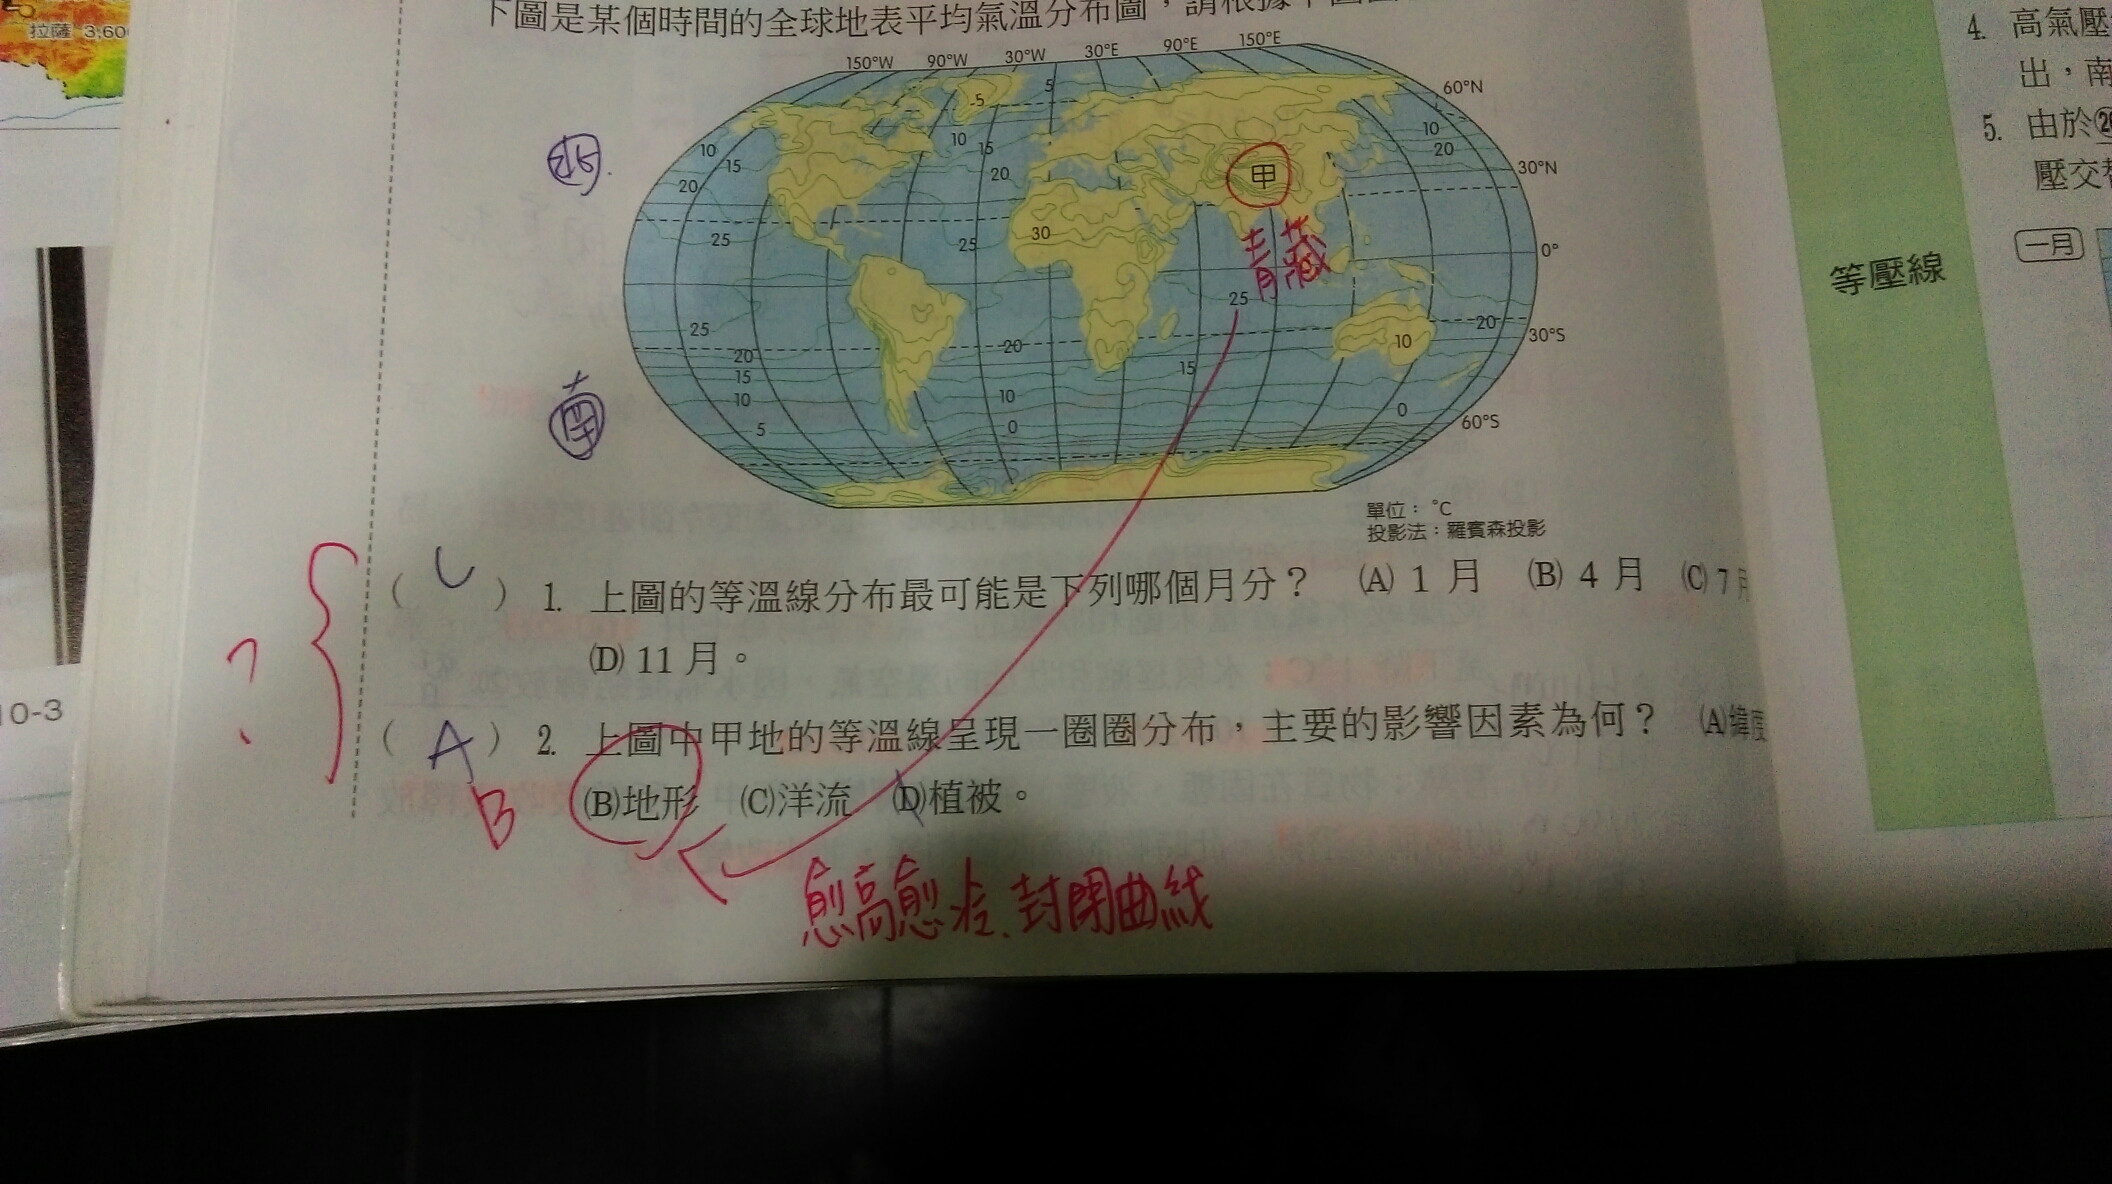 拉薩 3,60
下圖是某個時間的全球地表平均氣溫分布圖，請根據
150°W 90°W 30°W 30°E 90°E 150°E
60°N
30°N
0°
30°S
60°S
5
-5
10
15
20
10
15
20
10
20
25
25
30
25
25
20
15
10
5
20
10
0
15
20
10
0
甲
青藏
北
南
單位：°C
投影法：羅賓森投影
( C ) 1. 上圖的等溫線分布最可能是下列哪個月分？ (A) 1 月 (B) 4 月 (C) 7 月
(D) 11 月。
?
( A ) 2. 上圖中甲地的等溫線呈現一圈圈分布，主要的影響因素為何？ (A)緯度
B
(B)地形 (C)洋流 (D)植被。
愈高愈冷、封閉曲线
10-3
4. 高氣壓
出，南
5. 由於
壓交替
等壓線
一月